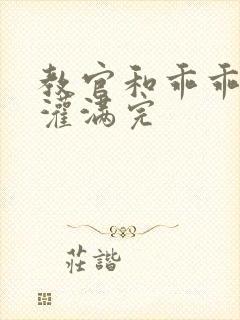 教官和乖乖
灌满完
莊諧